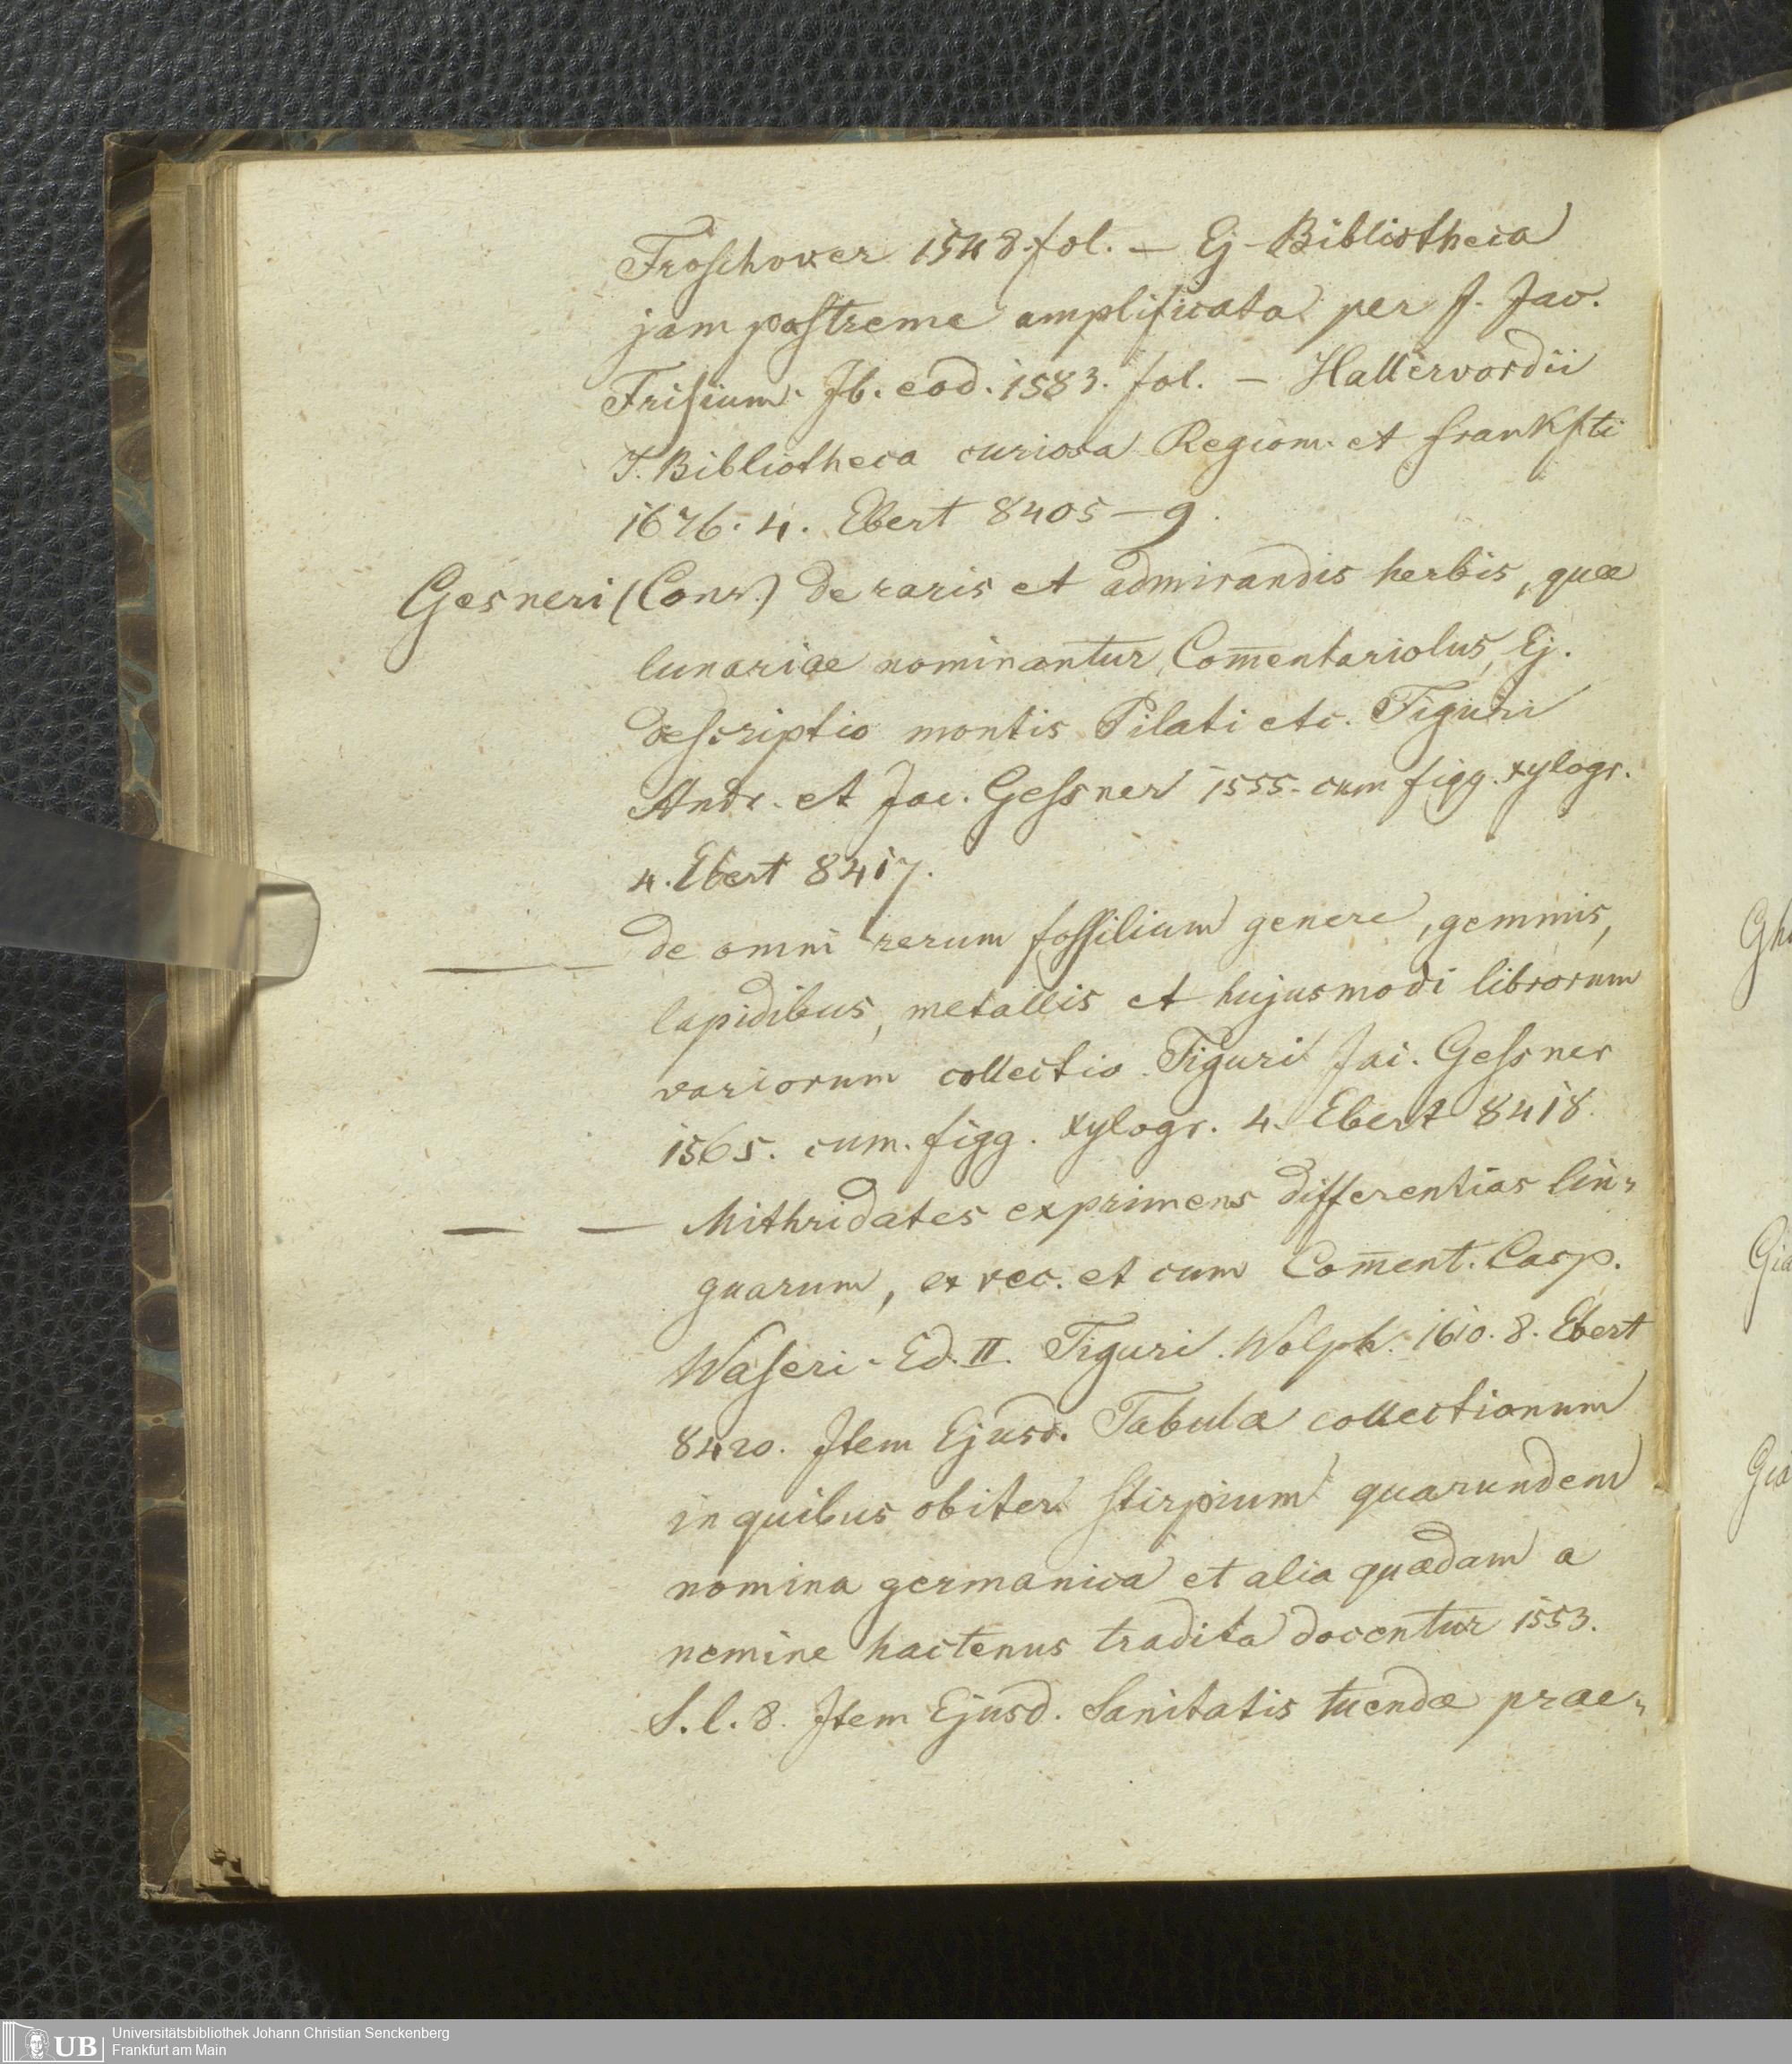 Froschover 1548 fol. — Ej Bibliotheca
jam postreme amplificata per J. Jac.
Frisium. Ib. eod. 1583. fol. — Hallervordii
J. Bibliotheca curiosa Regiom. et Frankfti
1676. 4. Ebert 8405—9.
Gesneri (Conr.) de raris et admirandis herbis, quæ
lunariae nominantur, Com̅entariolus, Ej.
descriptio montis Pilati etc. Tiguri
Andr. et Jac. Gessner 1555. cum figg. xylogr.
4. Ebert 8417.
— — de omni rerum fossilium genere, gemmis,
lapidibus, metallis et hujusmodi librorum
variorum collectio. Tiguri Jac. Gessner
1565. cum. figg. xylogr. 4. Ebert 8418.
— — Mithridates exprimens differentias lin-
guarum, ex rec. et cum Com̅ent. Casp.
Waseri. Ed. II. Tiguri. Wolph. 1610. 8. Ebert
8420. Item Ejusd. Tabulæ collectionum
in quibus obiter stirpium quarundem
nomina germanica et alia quædam a
nemine hactenus tradita docentur 1553.
S. l. 8. Item Ejusd. Sanitatis tuendæ prae-
Gh
Gia
UB
Universitätsbibliothek Johann Christian Senckenberg
Frankfurt am Main